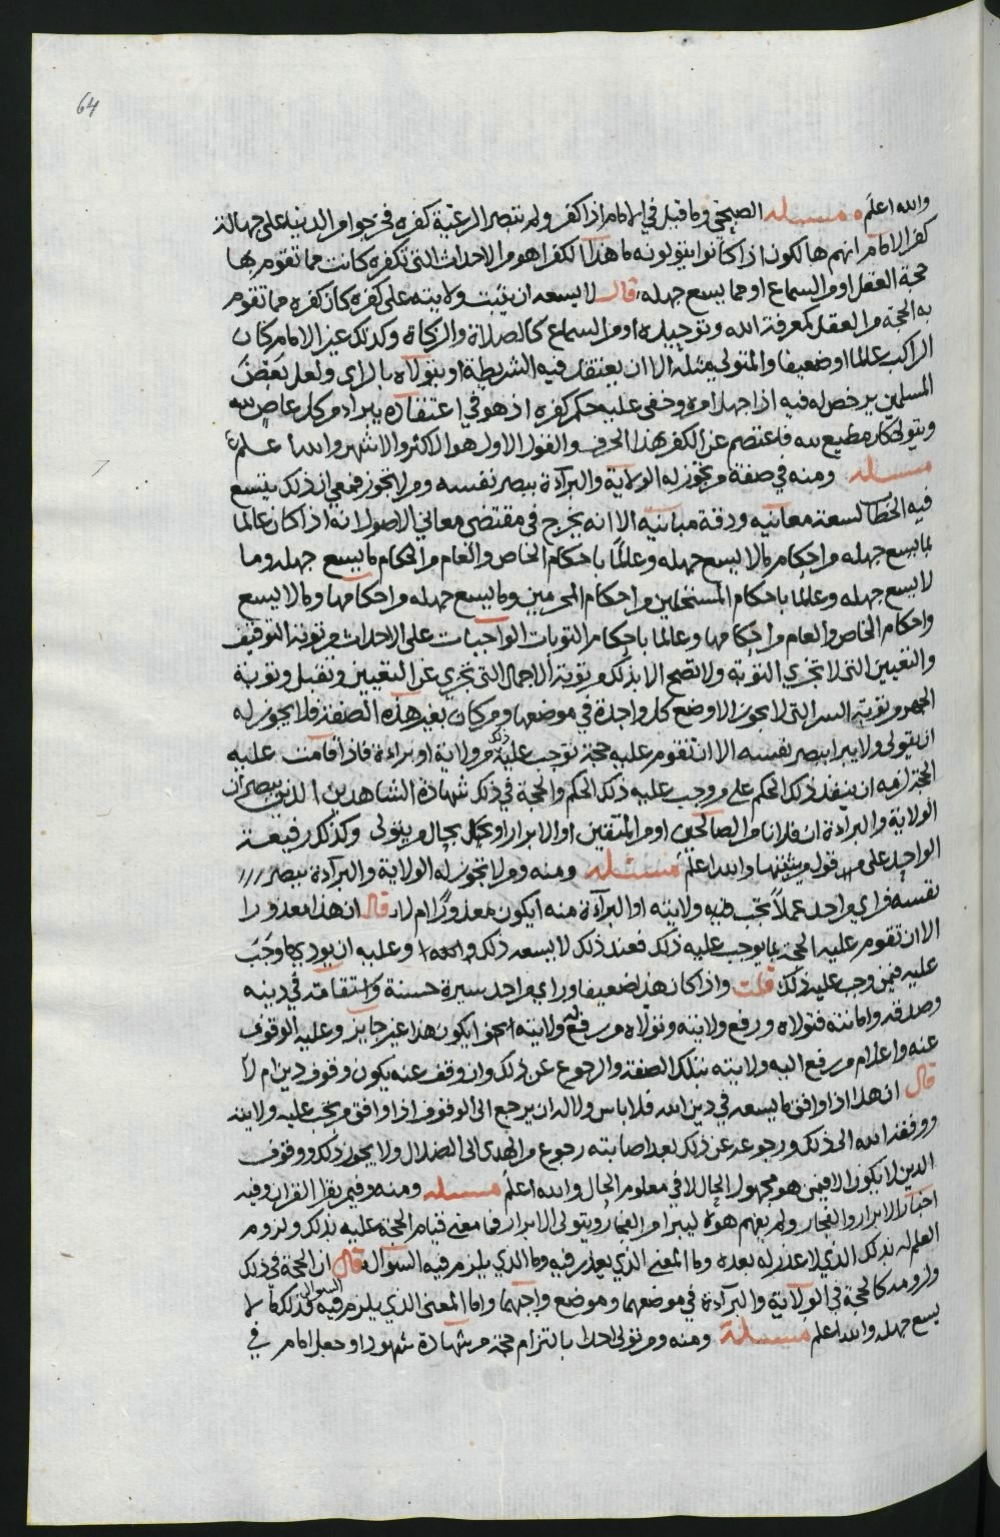 64
والله اعلم ه مسـئله الصبحي وما قيل في الامام اذا كفر ولم تبصر الرعية كفره فخرجوا من الدنيا على جهالة
كفر الامام انهم هالكون اذا كانوا يتولونه ما هذا الكفر اهو من الاحداث التي تكفره كانت مما تقوم بها
حجة العقل او من السماع او مما يسع جهله، قال لا يسعه ان يثبت ولايته على كفره كان كفره مما تقوم
به الحجة من العقل كمعرفة الله وتوحيده او من السماع كالصلاة والزكاة وكذلك غير الامام كان
الراكب عالما او ضعيفا والمتولي مثله الا ان يعتقد فيه الشريطة او يتولاه بالراي ولعل بعض
المسلمين يرخص له فيه اذا جهل امره وخفي عليه حكم كفره اذ هو في اعتقاده يبرا من كل عاص لله
ويتولى كل مطيع لله فاعتصم عن الكفر بهذا الحرف والقول الاول هو الاكثر والاشهر والله اعلم
مسـئله ومنه في صفة من تجوز له الولاية والبراءة ببصر نفسه ومن لا تجوز فمعي ان ذلك يتسع
فيه الخطاب لسعة معانيه ودقة مبانيه الا انه يخرج في مقتضى معاني الاصول انه اذا كان عالما
بما يسع جهله من احكام ما لا يسع جهله وعالما باحكام الخاص والعام من احكام ما يسع جهله وما
لا يسع جهله وعالما باحكام المستحلين من احكام المحرمين وما يسع جهله من احكامها وما لا يسع
واحكام الخاص والعام من احكامها وعالما باحكام التوبات الواجبات على الاحداث من توبة التوقيف
والتعيين التي لا تجزي التوبة ولا تصح الا بذلك من توبة الاجمال التي تجزي عن التعيين وتقبل وتوبة
الجهر من توبة السر التي لا يجوز الا وضع كل واحدة في موضعها ومن كان بغير هذه الصفة فلا يجوز له
ان يتولى ولا يبرا ببصر نفسه الا ان تقوم عليه حجة توجب عليه ذلك من ولاية او براءة فاذا قامت عليه
الحجة لزمه ان ينفذ ذلك الحكم على من وجب عليه ذلك الحكم والحجة في ذلك شهادة الشاهدين الذين يبصران
الولاية والبراءة ان فلانا من الصالحين او من المتقين او الابرار او بحال من يتولى وكذلك رفيعة
الواحد على قول من يثبتها والله اعلم مسـئله ومنه ومن لا تجوز له الولاية والبراءة ببصر
نفسه فراى من احد عملاً تجب فيه ولايته او البراءة منه ايكون معذورًا ام لا، قال ان هذا معذورا
الا ان تقوم عليه الحجة بما يوجب عليه ذلك فعند ذلك لا يسعه ذلك وعليه ان يودي ما وجب
عليه فيمن وجب عليه ذلك قلت واذا كان هذا ضعيفا وراى من احد سيرة حسنة واستقامة في دينه
وصدقه وامانته فتولاه ورفع ولايته وتولاه من رفع له ولايته ايكون هذا غير جايز وعليه الوقوف
عنه واعلام من رفع اليه ولايته بتلك الصفة والرجوع عن ذلك وان وقف عنه يكون وقوف دين ام لا
قال ان هذا اذا وافق ما يسعه في دين الله فلا باس ولا له ان يرجع الى الوقوف اذا وافق من تجب عليه ولايته
ووفقه الله الى ذلك ورجوعه عن ذلك بعد اصابته رجوع من الهدى الى الضلال ولا يجوز ذلك ووقوف
الدين لا يكون الا فيمن هو مجهول الحال لا في معلوم الحال والله اعلم مسـئله ومنه وفيمن يقرا القران وفيه
اخبار الابرار والفجار ولم يفهم هو ليبرا من الفجار ويتولى الابرار فما معنى قيام الحجة عليه بذلك ولزوم
العلم له بذلك الذي لا عذر له بعده وما المعنى الذي يعذر فيه وما الذي يلزم فيه السوال، قال ان الحجة في ذلك
ولزومه كالحجة في الولاية والبراءة في موضعهما وموضع واجبهما واما المعنى الذي يلزم فيه السوال فذلك ما لا
يسع جهله والله اعلم مسـئلة ومنه ومن تولى احدا بالتزام حجة من شهادة شهود او جعل امام في